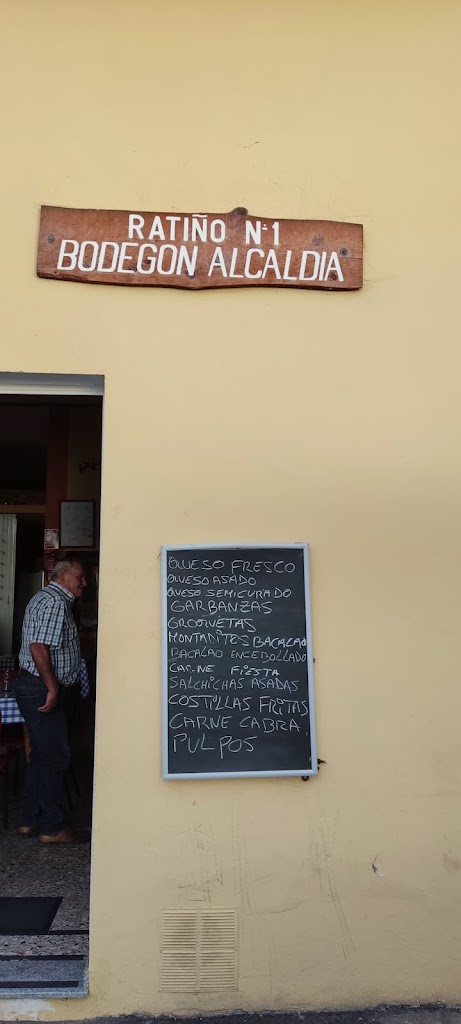 RATIÑO Nº1
BODEGON ALCALDIA
QUESO FRESCO
QUESO ASADO
QUESO SEMICURADO
GARBANZAS
CROQUETAS
MONTADITOS BACALAO
BACALAO ENCEBOLLADO
CARNE FIESTA
SALCHICHAS ASADAS
COSTILLAS FRITAS
CARNE CABRA.
PULPOS